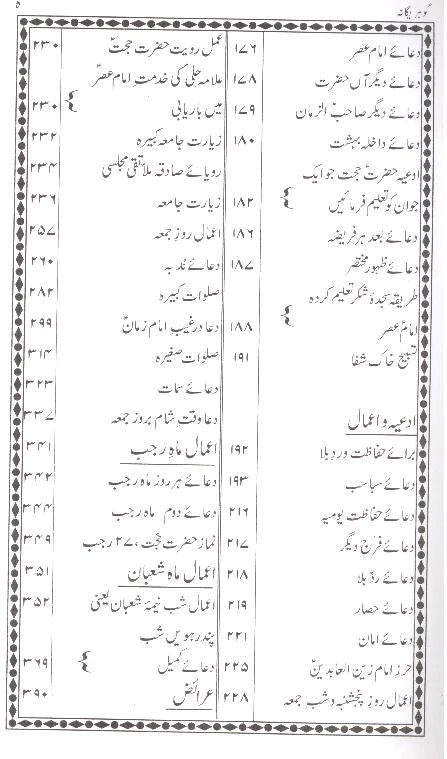 گوہر یگانہ
۵
دعائے امام عصر ۱۷۶
دعائے دیگر آں حضرت ۱۷۸
دعائے دیگر صاحب الزمان ۱۷۹
دعائے داخلہ بہشت ۱۸۰
ادعیہ حضرتؑ حجت جو ایک
جوان کو تعلیم فرمائیں } ۱۸۲
دعائے بعد ہر فریضہ ۱۸۶
دعائے ظہور مختصر ۱۸۷
طریقہ سجدۂ شکر تعلیم کردہ
امام عصرؑ } ۱۸۸
تسبیح خاک شفا ۱۹۱
ادعیہ و اعمال
برائے حفاظت و رد بلا ۱۹۲
دعائے سباسب ۱۹۳
دعائے حفاظت یومیہ ۲۱۶
دعائے فرج دیگر ۲۱۷
دعائے ردّ بلا ۲۱۸
دعائے حصار ۲۱۹
دعائے امان ۲۲۱
حرز امام زین العابدینؑ ۲۲۵
اعمال روز پنجشنبہ و شب جمعہ ۲۲۸
عمل رویت حضرت حجتؑ ۲۳۰
علامہ حلی کی خدمتِ امام عصرؑ
میں باریابی } ۲۳۰
زیارت جامعہ کبیرہ ۲۳۲
رویائے صادقہ ملا تقی مجلسی ۲۳۴
زیارت جامعہ ۲۳۶
اعمال روز جمعہ ۲۵۷
دعائے ندبہ ۲۶۰
صلوات کبیرہ ۲۸۲
دعا در غیب امام زمانؑ ۲۹۹
صلوات صغیرہ ۳۱۴
دعائے سمات ۳۲۳
دعا وقت شام بروز جمعہ ۳۳۷
اعمال ماہ رجب ۳۴۱
دعائے ہر روز ماہ رجب ۳۴۲
دعائے دوم ماہ رجب ۳۴۴
نماز حضرت حجتؑ، ۲۷ رجب ۳۴۹
اعمال ماہ شعبان ۳۵۱
اعمال شب نیمۂ شعبان یعنی ۳۵۲
پندرہویں شب
دعائے کمیل } ۳۶۹
عرائض ۳۹۰